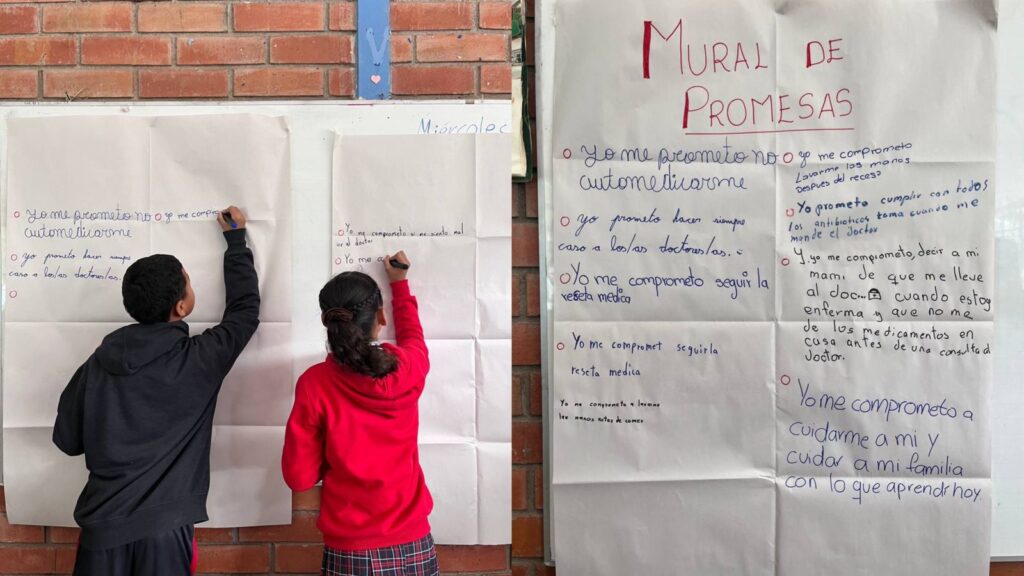 V
Miércoles
Yo me prometo no
automedicarme
yo me compro
yo prometo hacer siempre
caso a los/las doctores/las.
Yo me comprometo si me siento mal
ir al doctor
Yo me a
MURAL DE
PROMESAS
Yo me prometo no
automedicarme
yo prometo hacer siempre
caso a los/las doctores/las.
Yo me comprometo seguir la
reseta medica
Yo me compromet seguirla
reseta medica
Yo me comprometo a lavarme
las manos antes de comer
yo me comprometo
Lavarme las manos
después del receso
Yo prometo cumplir con todos
los antibioticos toma cuando me
mande el doctor
Y yo me comprometo, decir a mi
mami de que me lleve
al doc... cuando estoy
enferma y que no me
de los medicamentos en
casa antes de una consulta al
doctor.
Yo me comprometo a
cuidarme a mi y
cuidar a mi familia
con lo que aprendr hoy.